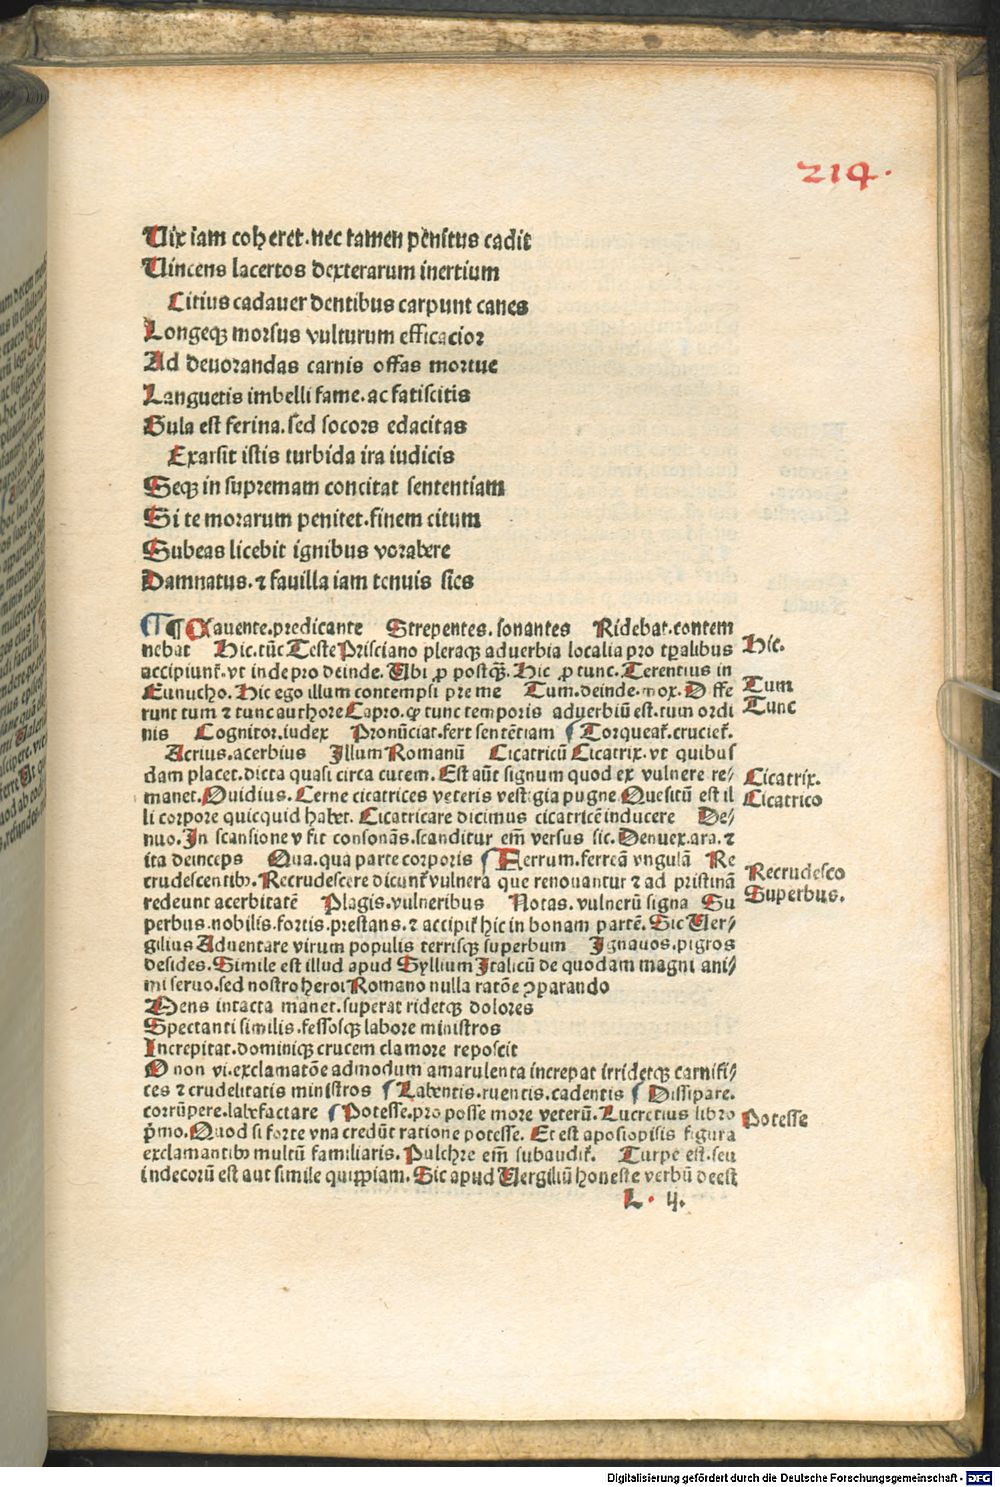 214.
Uix iam coheret. nec tamen penitus cadit
Uincens lacertos dexterarum inertium
Citius cadauer dentibus carpunt canes
Longeqꝫ morsus vulturum efficacior
Ad deuorandas carnis offas mortue
Languetis imbelli fame. ac fatiscitis
Gula est ferina. sed socors edacitas
Exarsit istis turbida ira iudicis
Seqꝫ in supremam concitat sententiam
Si te morarum penitet. finem citum
Subeas licebit ignibus vorabere
Damnatus. ⁊ fauilla iam tenuis sies
¶ Pauente. predicante Strepentes. sonantes Ridebat. contem
nebat Hic. tūc Teste Prisciano pleraqꝫ aduerbia localia pro tp̄alibus
accipiunt᷑. vt inde pro deinde. Ubi ꝓ postqꝫ. Hic ꝓ tunc. Terentius in
Eunucho. Hic ego illum contempsi pre me Tum. deinde. mox. Diffe
runt tum ⁊ tunc authore Capro. ꝙ tunc temporis aduerbiū est. tum ordi
nis Cognitor. iudex Pronūciat. fert sentētiam Torqueat᷑. crucief᷑.
Acrius. acerbius Illum Romanū Cicatricū Cicatrix. vt quibus
dam placet. dicta quasi circa cutem. Est aūt signum quod ex vulnere re⸗
manet. Ouidius. Cerne cicatrices veteris vestigia pugne Quesitū est il
li corpore quicquid habet. Cicatricare dicimus cicatricē inducere De⸗
nuo. In scansione v fit consonās. scanditur em̄ versus sic. Denuex. ara. ⁊
ita deinceps Qua. qua parte corporis Ferrum. ferreā vngulā Re
crudescentibꝰ. Recrudescere dicunt᷑ vulnera que renouantur ⁊ ad pristinā
redeunt acerbitatē Plagis. vulneribus Notas. vulnerū signa Su
perbus. nobilis. fortis. prestans. ⁊ accipit᷑ hic in bonam partē. Sic Uer⸗
gilius Aduentare virum populis terrisqꝫ superbum Ignauos. pigros
desides. Simile est illud apud Syllium Italicū de quodam magni ani⸗
mi seruo. sed nostro heroi Romano nulla ratōe ꝯparando
Mens intacta manet. superat ridetqꝫ dolores
Spectanti similis. fessosqꝫ labore ministros
Increpitat. dominiqꝫ crucem clamore reposcit
O non vi. exclamatōe admodum amarulenta increpat irridetqꝫ carnifi⸗
ces ⁊ crudelitatis ministros Labentis. ruentis. cadentis Dissipare.
corrūpere. labefactare Potesse. pro posse more veterū. Lucretius libro
p̄mo. Quod si forte vna credūt ratione potesse. Et est aposiopisis figura
exclamantibꝰ multū familiaris. Pulchre em̄ subaudit᷑. Turpe est. seu
indecorū est aut simile quippiam. Sic apud Uergiliū honeste verbū deest
L. ij.
Hic.
Tum
Tunc
Cicatrix.
Cicatrico
Recrudesco
Superbus.
Potesse
Digitalisierung gefördert durch die Deutsche Forschungsgemeinschaft - DFG